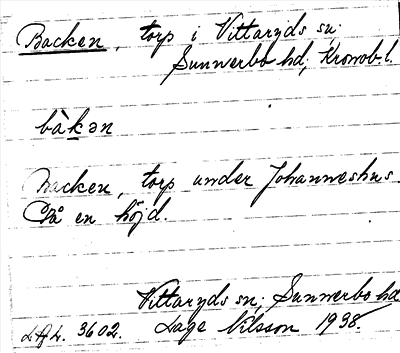 Backen, torp i Vittaryds sn;
Sunnerbo hd, Kronob. l.
bàkən
Backen, torp under Johanneshus.
På en höjd.
Vittaryds sn; Sunnerbo hd
L.A.L. 3602. Lage Nilsson 1938.